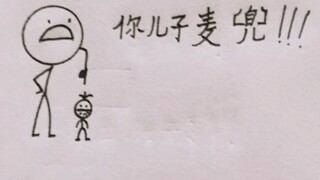 你儿子麦兜!!!